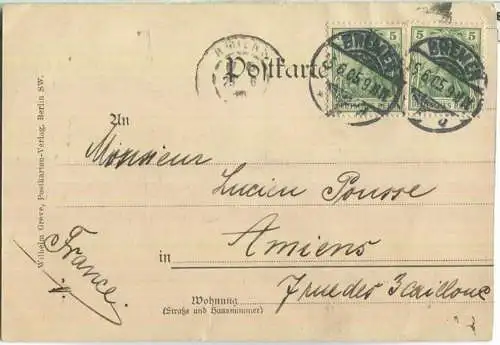 AMIENS
Postkarte
5 5
BREMEN
BREMEN
DEUTSCHES REICH
An
Monsieur
Lucien Pousse
in Amiens
7 rue des 3 cailloux
Wohnung
(Straße und Hausnummer)
France
Wilhelm Greve, Postkarten-Verlag, Berlin SW.